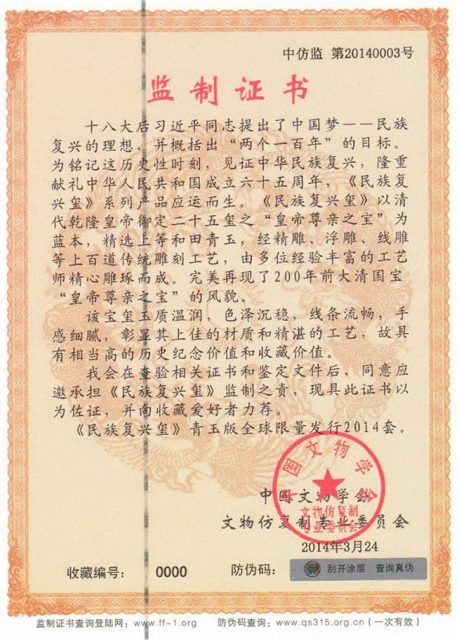 中仿监 第20140003号
监制证书
十八大后习近平同志提出了中国梦——民族
复兴的理想，并概括出“两个一百年”的目标。
为铭记这历史性时刻，见证中华民族复兴，隆重
献礼中华人民共和国成立六十五周年，《民族复
兴玺》系列产品应运而生。《民族复兴玺》以清
代乾隆皇帝御定二十五玺之“皇帝尊亲之宝”为
蓝本，精选上等和田青玉，经精雕、浮雕、线雕
等上百道传统雕刻工艺，由多位经验丰富的工艺
师精心雕琢而成。完美再现了200年前大清国宝
“皇帝尊亲之宝”的风貌。
该宝玺玉质温润、色泽沉稳，线条流畅，手
感细腻，彰显其上佳的材质和精湛的工艺，故具
有相当高的历史纪念价值和收藏价值。
我会在查验相关证书和鉴定文件后，同意应
邀承担《民族复兴玺》监制之责，现具此证书以
为佐证，并向收藏爱好者力荐。
《民族复兴玺》青玉版全球限量发行2014套。
中国文物学会
文物仿复制专业委员会
2014年3月24
中国文物学会
文物仿复制
专业委员会
收藏编号： 0000 防伪码： 刮开涂层 查询真伪
监制证书查询登陆网：www.ff-1.org 防伪码查询：www.qs315.org.cn（一次有效）